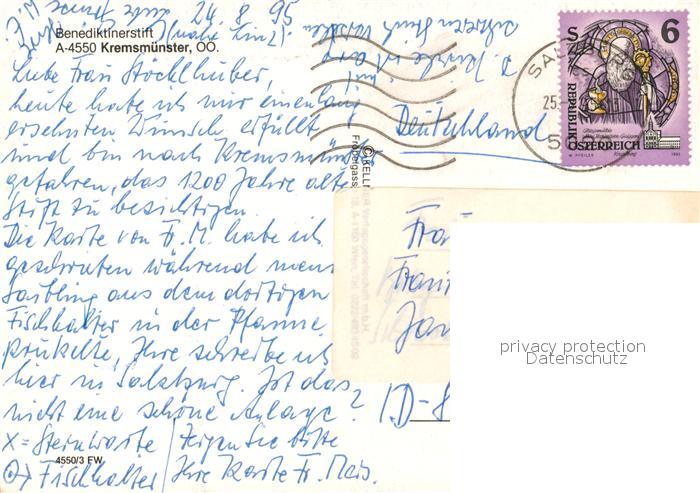 24.8.95
Benediktinerstift (nahe Linz).
A-4550 Kremsmünster, OÖ.
Liebe Frau Stocklhuber,
heute habe ich mir einen lang
ersehnten Wunsch erfüllt
und bin nach Kremsmünster
gefahren, das 1200 Jahre alte
Stift zu besichtigen.
Die Karte von Fr. M. habe ich
geschrieben während mein
Saibling aus dem dortigen
Fischhalter in der Pfanne
brutzelte, Ihre schreibe ich
hier in Salzburg. Ist das
nicht eine schöne Anlage?
X = Sternwarte
4550/3 FW
→ Fischhalter
Zeigen Sie bitte
Ihre Karte Fr. M
Deutschland
S 6
REPUBLIK
ÖSTERREICH
25.
5
Frau
D-8
privacy protection
Datenschutz